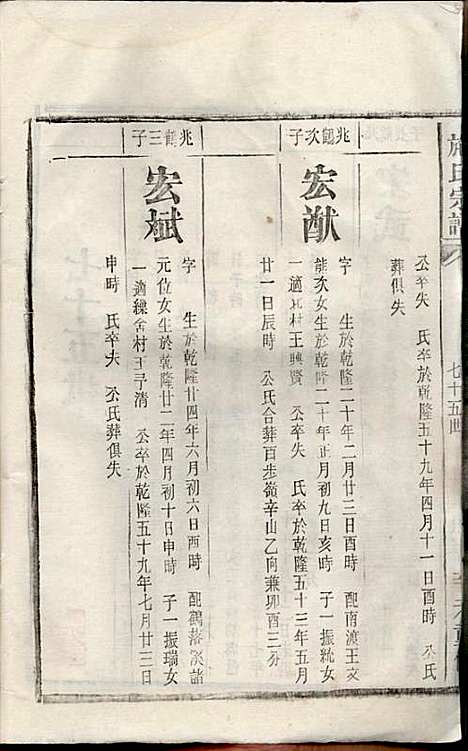 氏宗譜
七十五
公卒失　氏卒於乾隆五十九年四月十一日酉時　公氏
葬俱失
兆鶴次子
宏猷
字　生於乾隆二十年二月廿三日酉時　配南渡王文
能次女生於乾隆二十年正月初九日亥時　子一振紞女
一適瓦村王興賢　公卒失　氏卒於乾隆五十三年五月
廿一日辰時　公氏合葬百步嶺辛山乙向兼卯酉三分
兆鶴三子
宏斌
字　生於乾隆廿四年六月初六日酉時　配鶴落溪諸
元位女生於乾隆廿二年四月初十日申時　子一振瑞女
一適練舍村王子清　公卒於乾隆五十九年七月廿三日
申時　氏卒失　公氏葬俱失